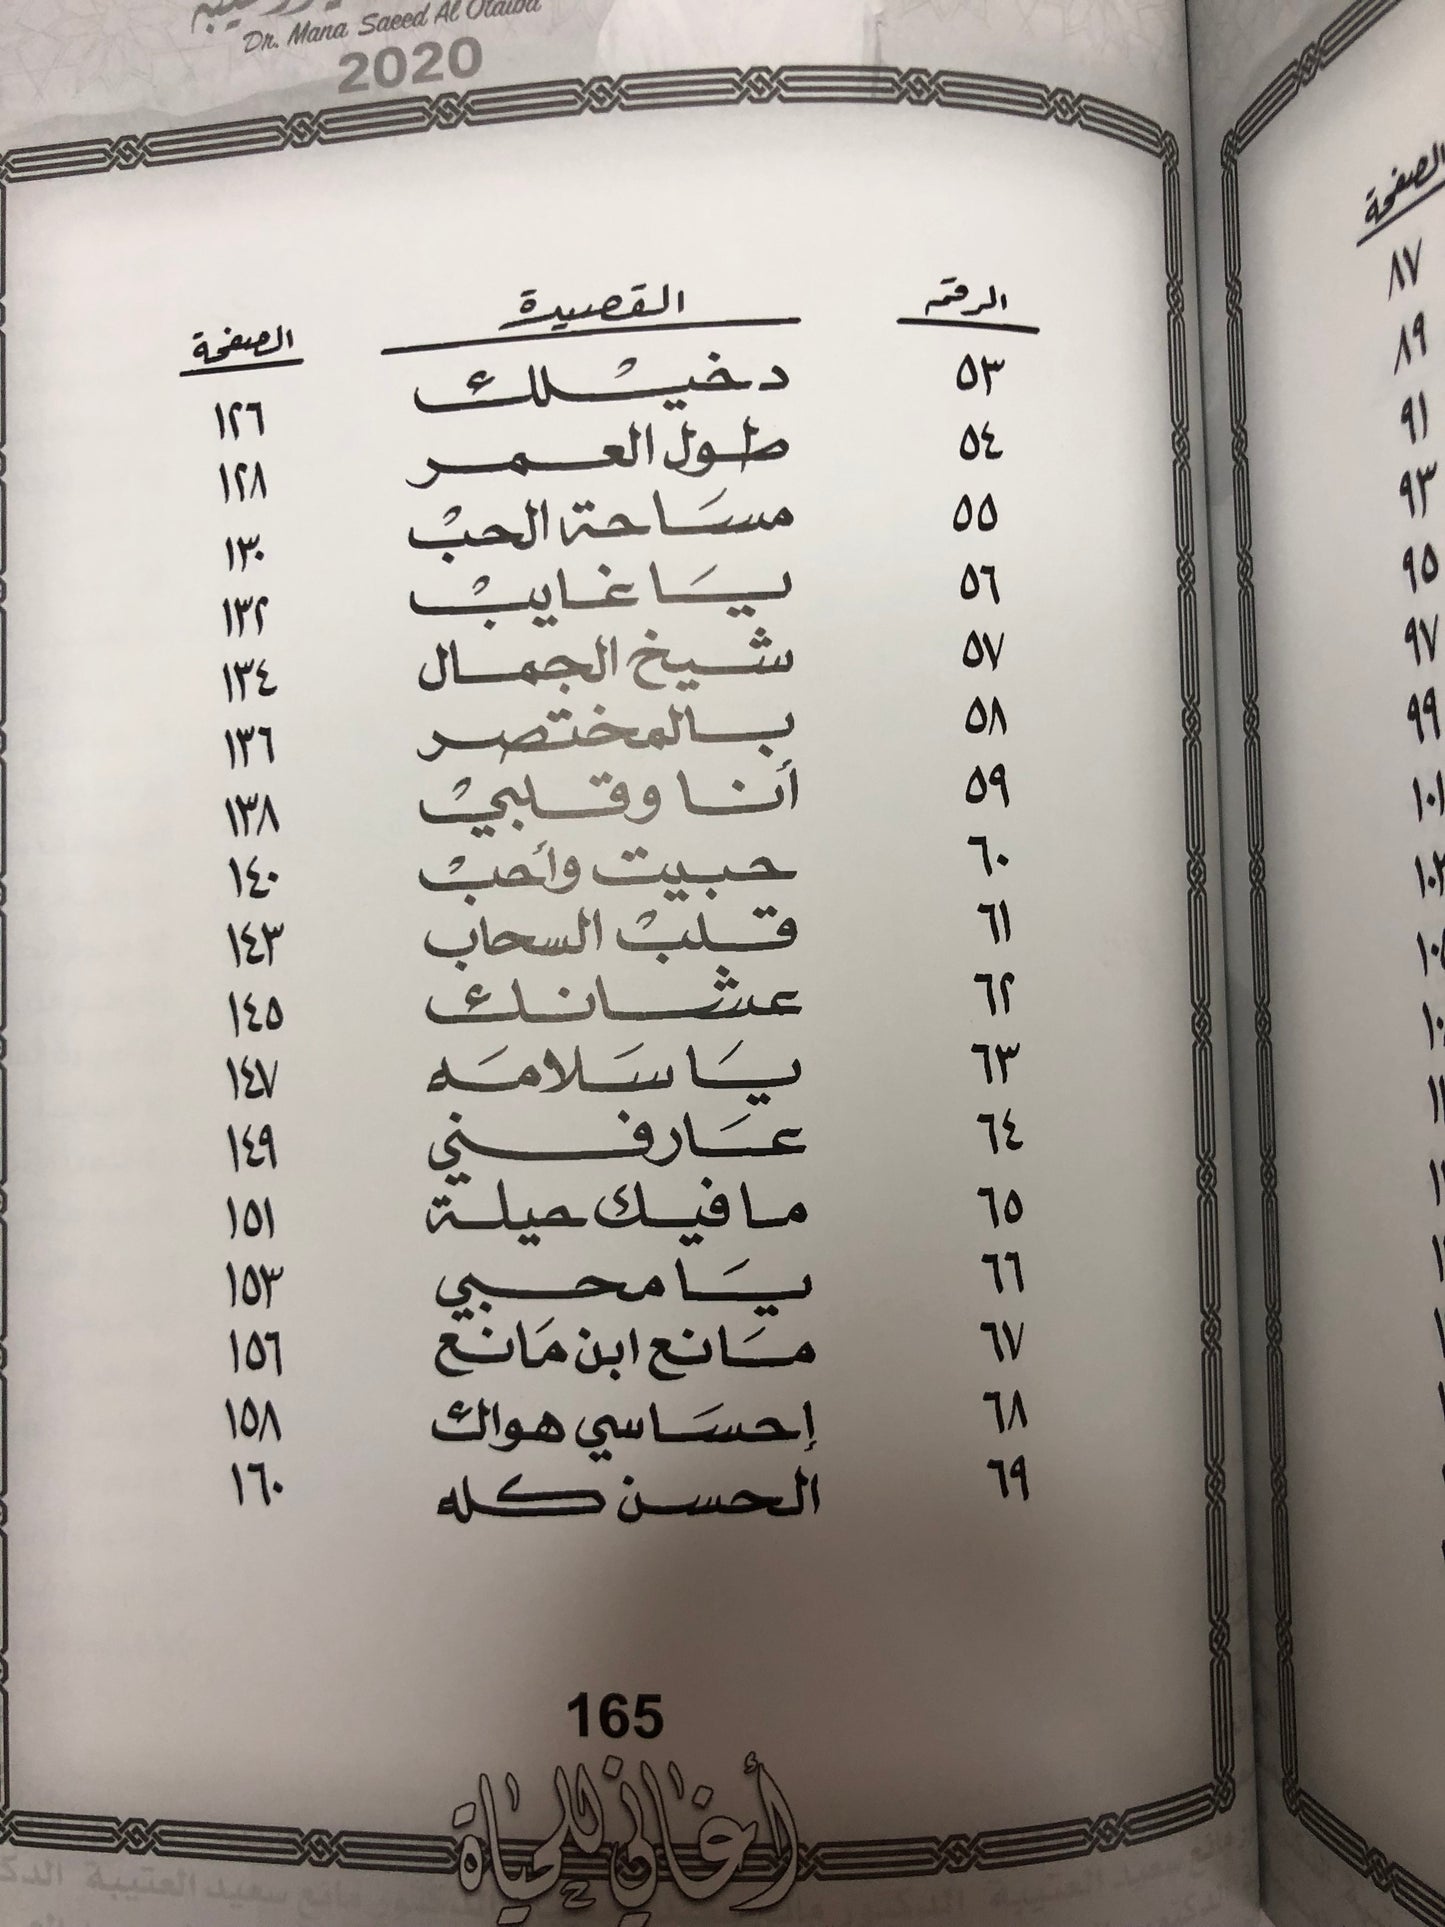 Dr. Mana Saeed Al Otaiba
2020
الرقم القصيدة الصفحة
٥٣ دخيلك ١٢٦
٥٤ طول العمر ١٢٨
٥٥ مساحة الحب ١٣٠
٥٦ يا غايب ١٣٢
٥٧ شيخ الجمال ١٣٤
٥٨ بالمختصر ١٣٦
٥٩ أنا وقلبي ١٣٨
٦٠ حبيت وأحب ١٤٠
٦١ قلب السحاب ١٤٣
٦٢ عشانك ١٤٥
٦٣ يا سلامه ١٤٧
٦٤ عارفني ١٤٩
٦٥ ما فيك حيلة ١٥١
٦٦ يا محبي ١٥٣
٦٧ مانع ابن مانع ١٥٦
٦٨ إحساسي هواك ١٥٨
٦٩ الحسن كله ١٦٠
165
أغاني للحياة
الصفحة
٨٧
٨٩
٩١
٩٣
٩٥
٩٧
٩٩
١٠١